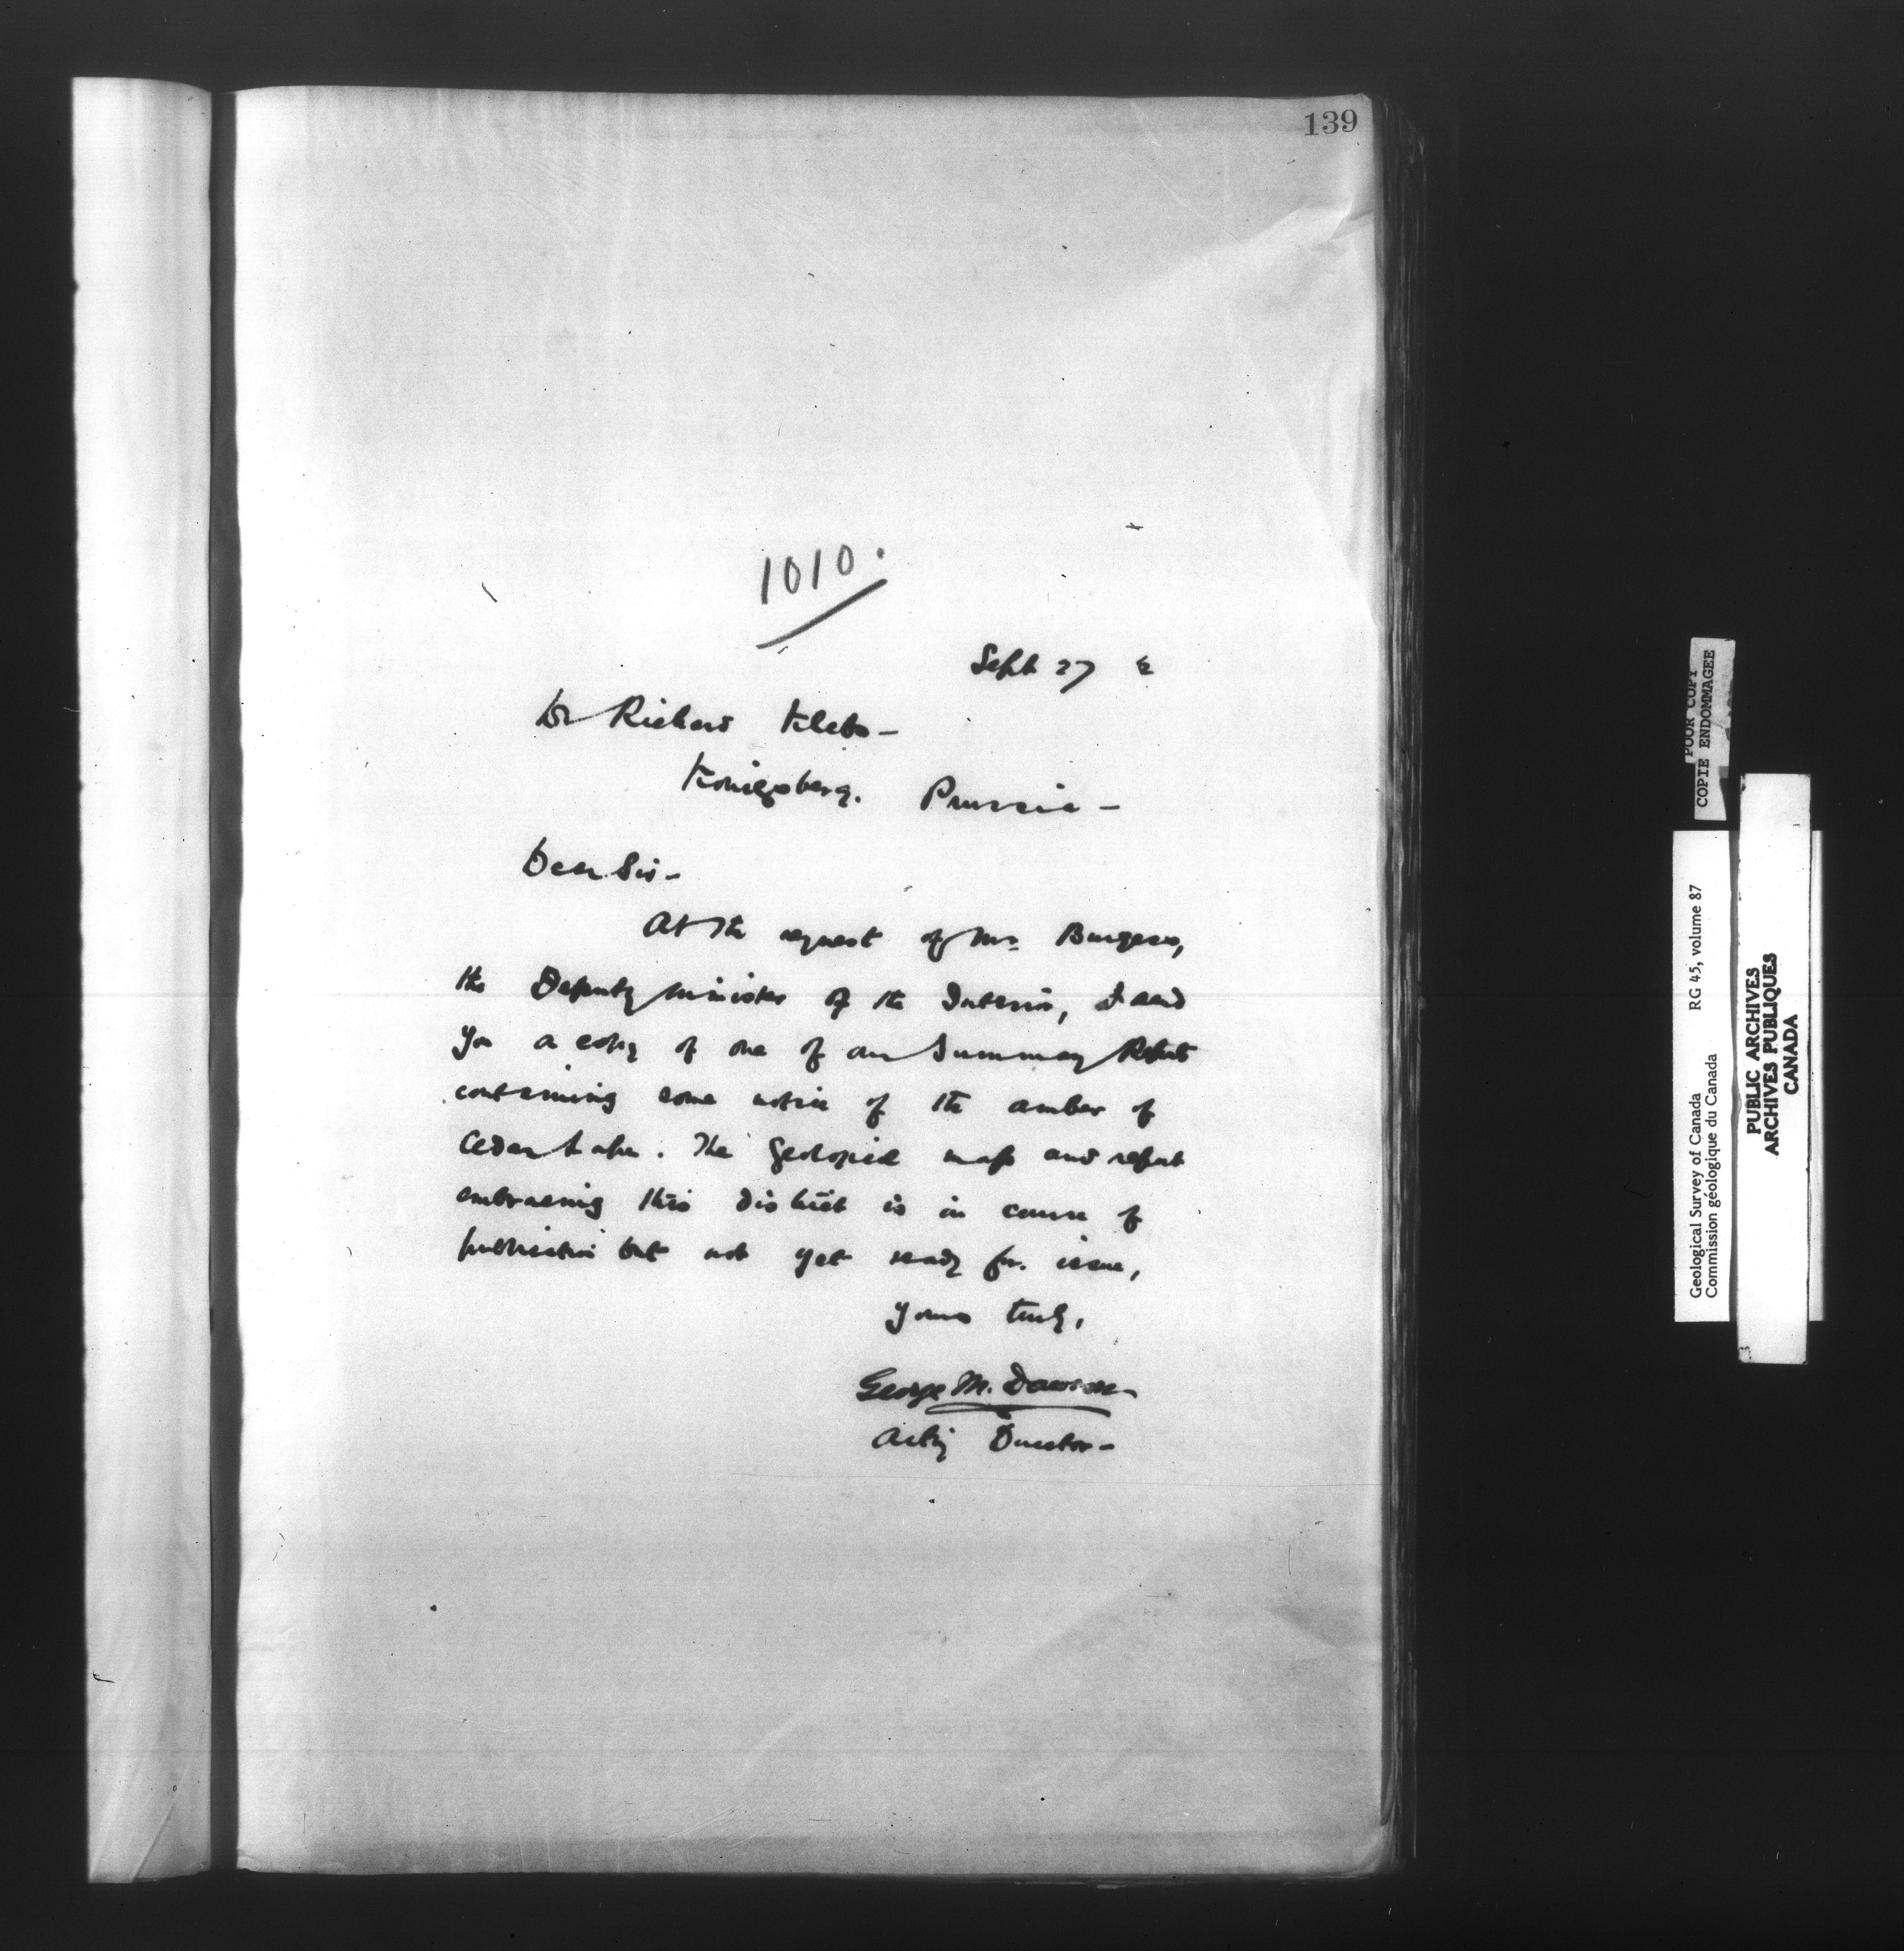 139
1010.
Sept 27
Dr Richard Klebs -
Königsberg. Prussia -
Dear Sir -
At the request of Mr. Burgess,
the Deputy Minister of the Interior, I send
you a copy of one of our Summary Reports
containing some notice of the amber of
Cedar Lake. The geological map and report
embracing this district is in course of
publication but not yet ready for issue,
Yours truly,
George M. Dawson
Acting Director -
POOR COPY
COPIE ENDOMMAGEE
Geological Survey of Canada RG 45, volume 87
Commission géologique du Canada
PUBLIC ARCHIVES
ARCHIVES PUBLIQUES
CANADA